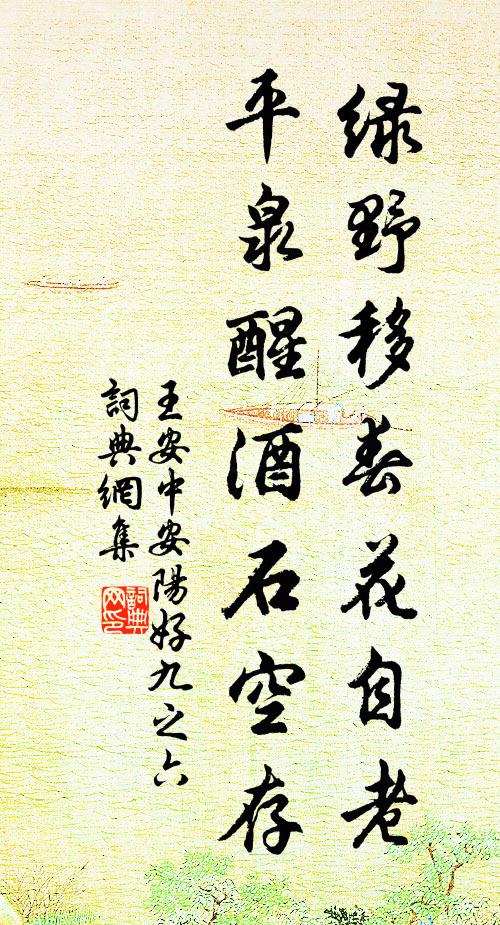 绿野移春花自老
平泉醒酒石空存
王安中安陽好九之六
詞典網集
詞典网印